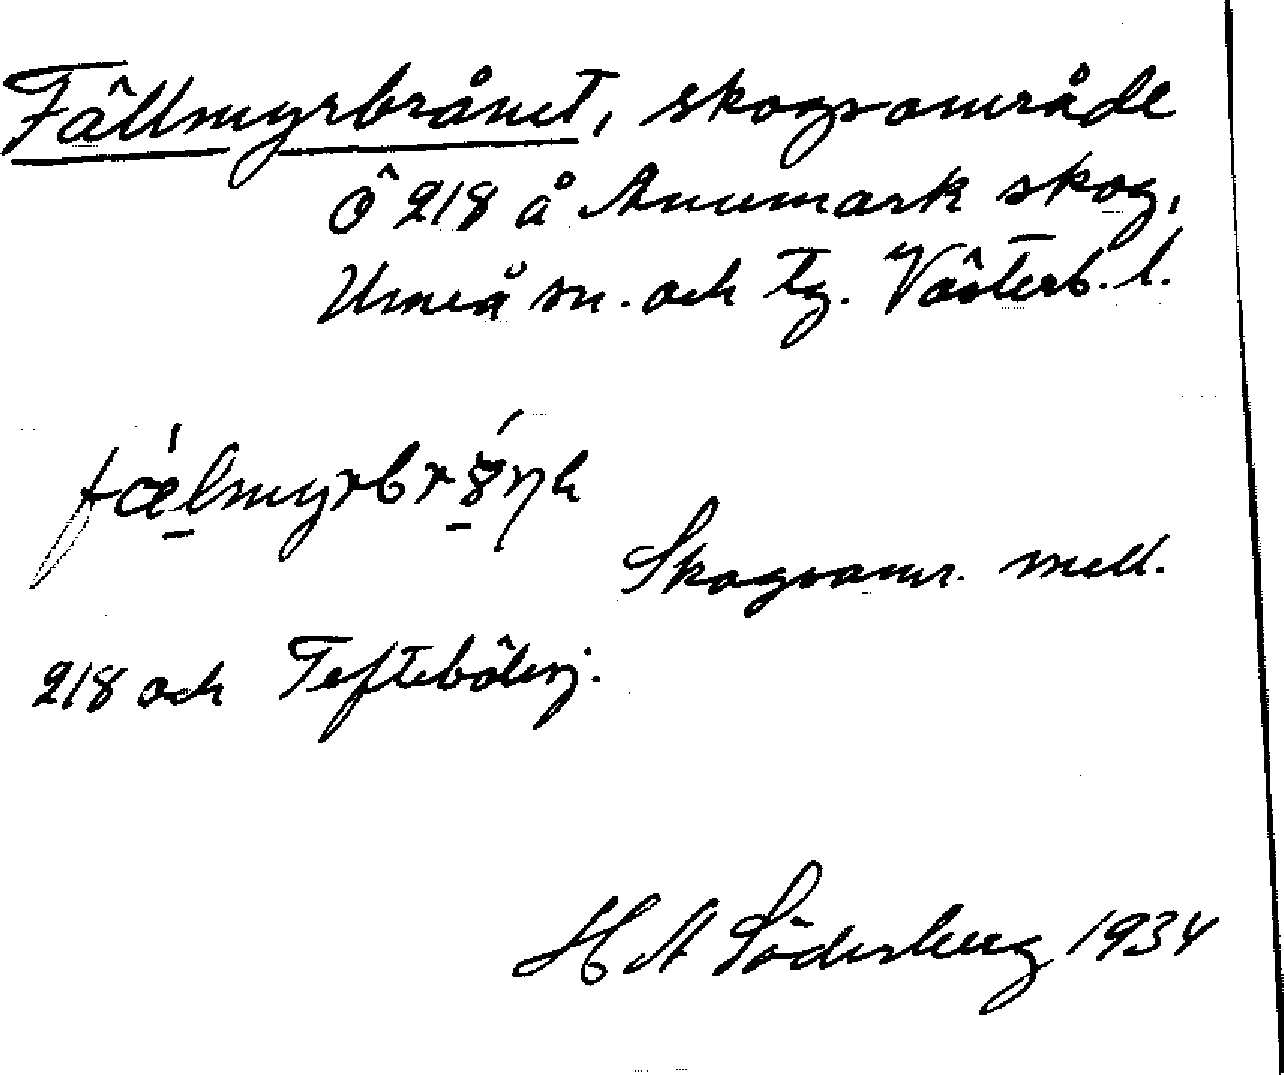 Fällmyrbrånet, skogsområde
Ö 218 å Anumark skog,
Umeå sn. och tg. Västerb. l.
Skogsomr. mell.
218 och Teftebölevj.
H A Söderberg 1934